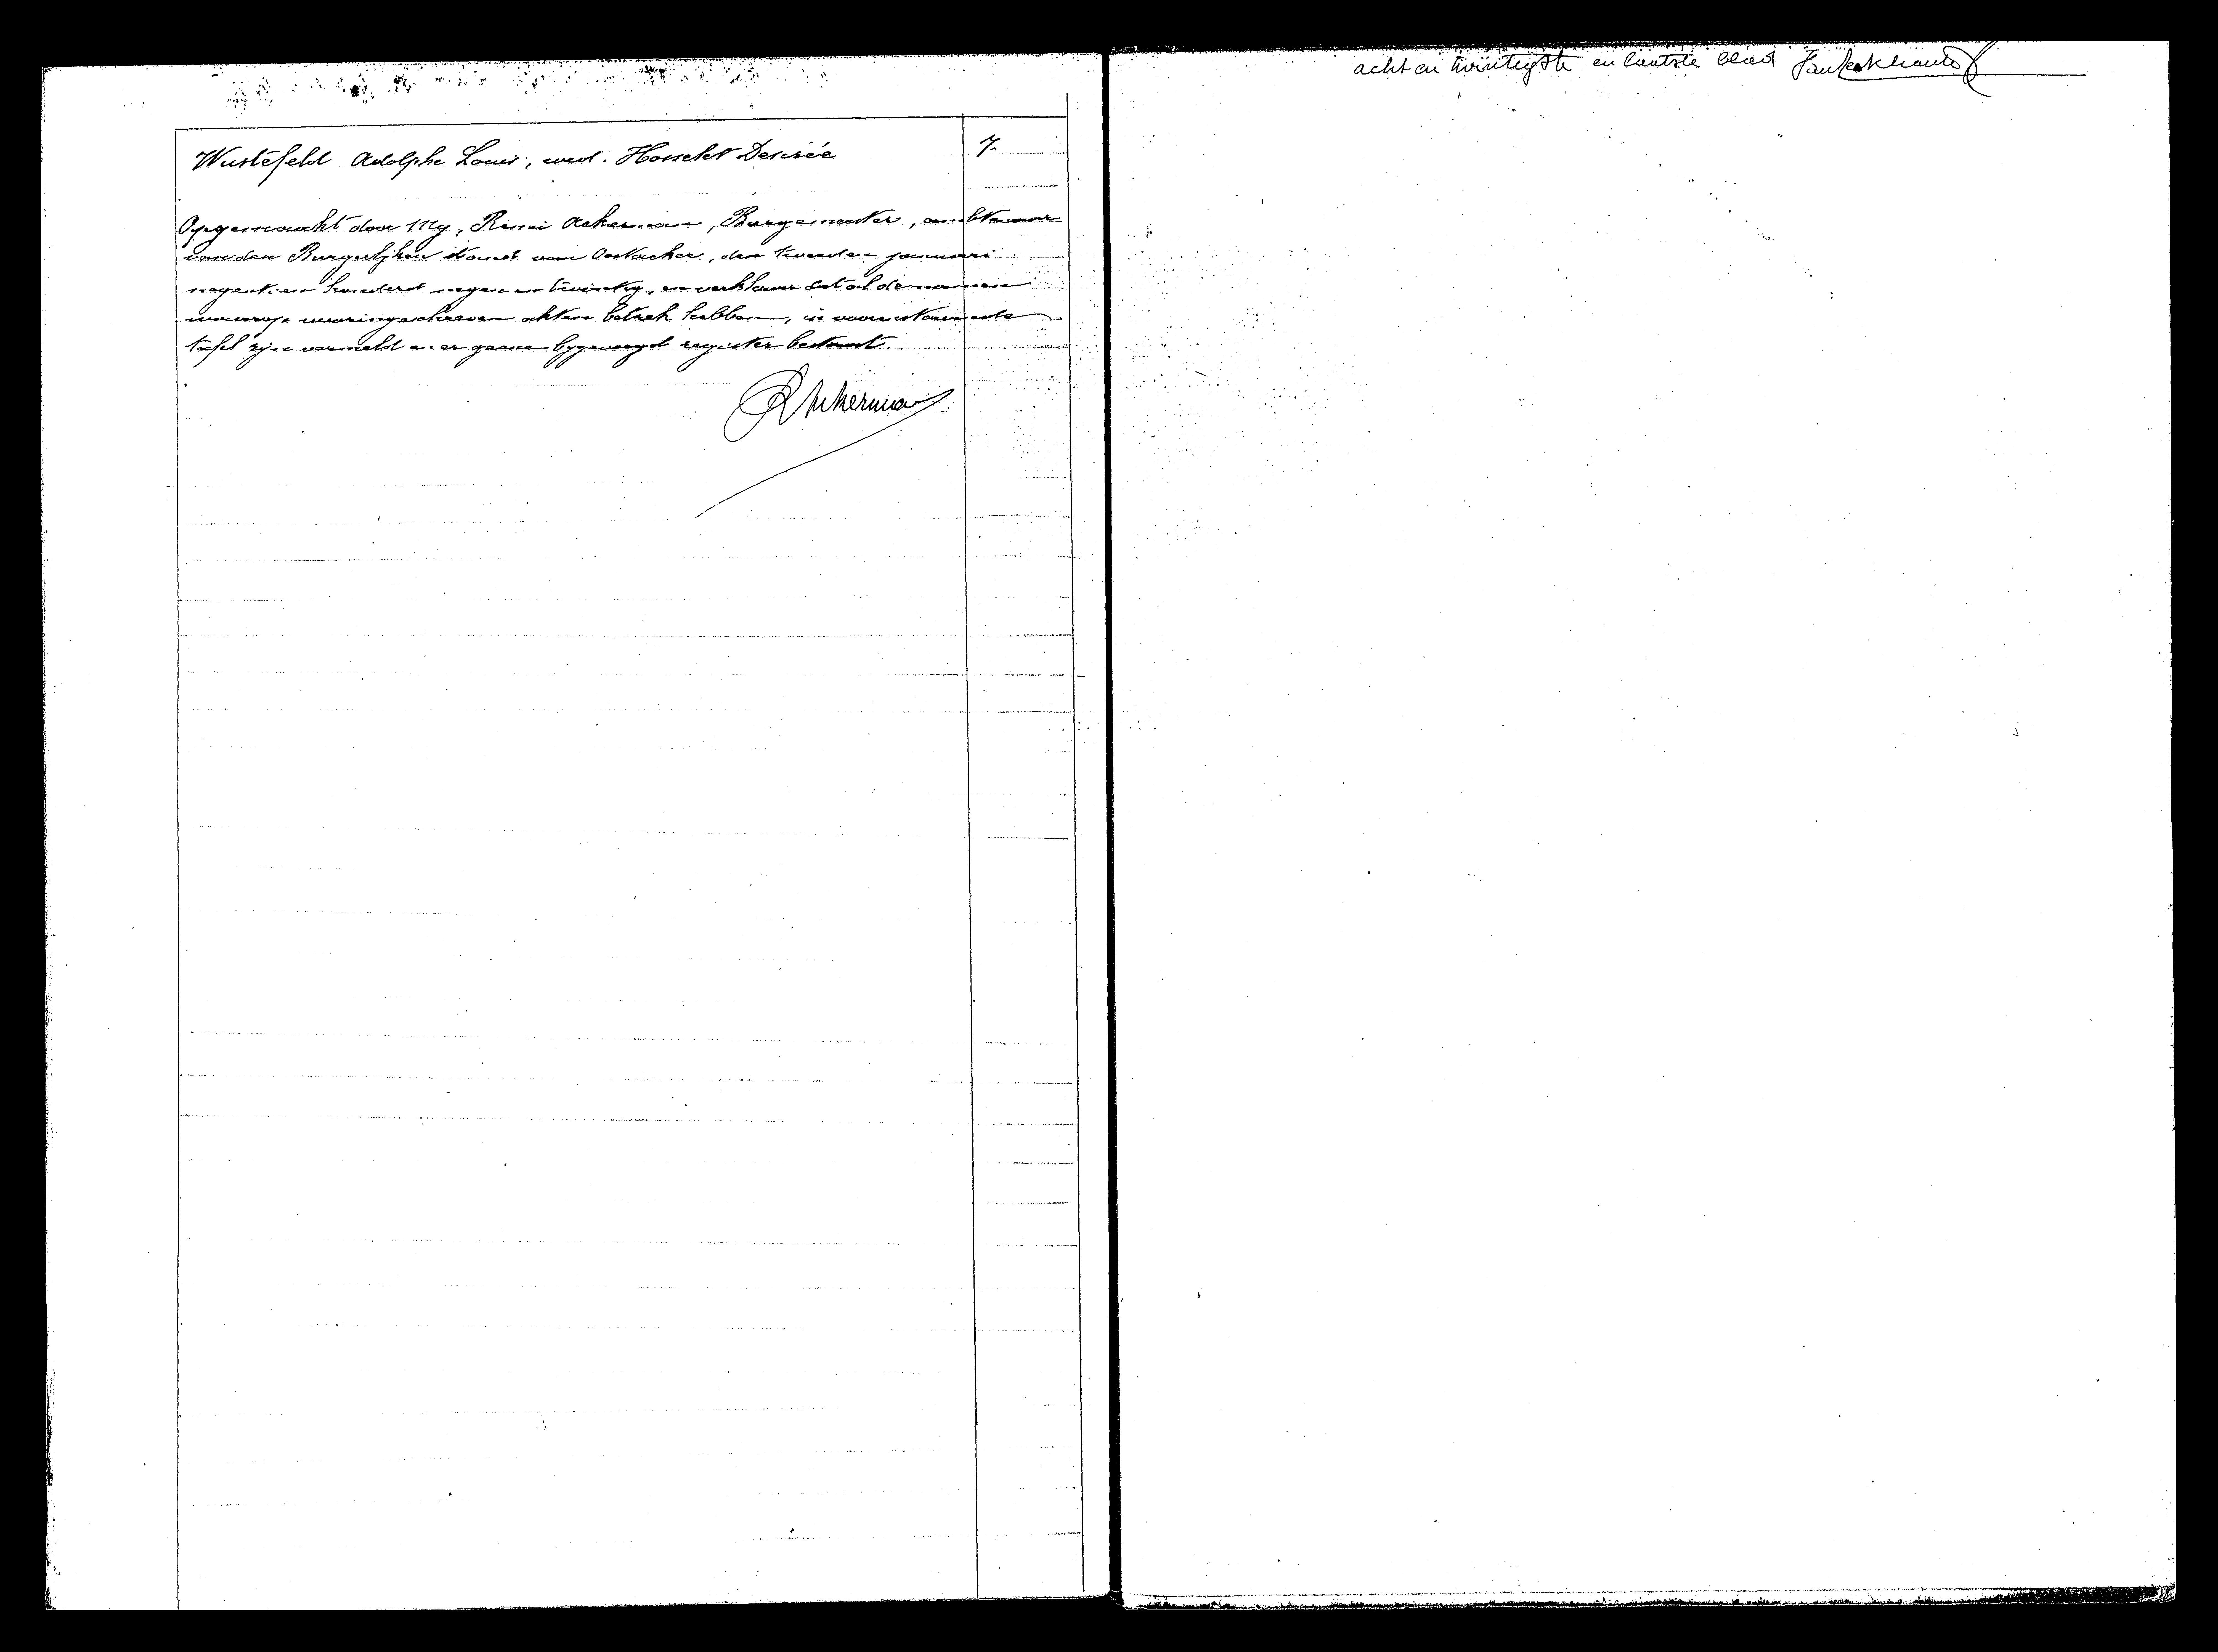 Wustefeld Adolphe Louis, wed. Hosselet Desirée 7.
Opgemaakt door My, Remi Ackerman, Burgemeester, ambtenaar
van den Burgerlijken stand van Oostacker, den tweeden januari
negentien honderd negen en twintig, en verklaren dat al de namen
waarop ingeschreven akten betrek hebben, in voorenstaande
tafel zijn vermeld en er geen bygevoegd register bestaat.
RAckerman
acht en twintigste en laatste blad